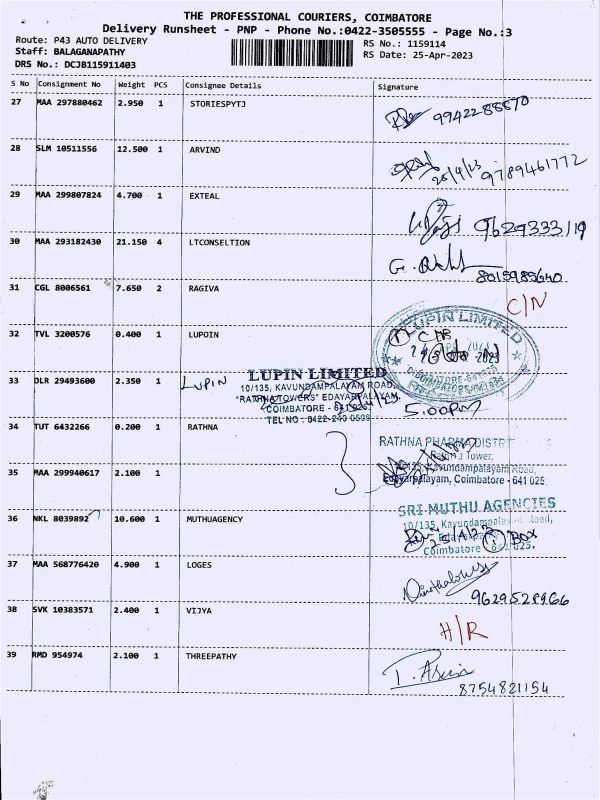 THE PROFESSIONAL COURIERS, COIMBATORE
Delivery Runsheet - PNP - Phone No.:0422-3505555 - Page No.:3
Route: P43 AUTO DELIVERY
RS No.: 1159114
Staff: BALAGANAPATHY
RS Date: 25-Apr-2023
DRS No.: DCJB115911403
S No Consignment No Weight PCS Consignee Details Signature
27 MAA 297880462 2.950 1 STORIESPYTJ 9942288870
28 SLM 10511556 12.500 1 ARVIND 25/4/23 9789461772
29 MAA 299807824 4.700 1 EXTEAL 9629333119
30 MAA 293182430 21.150 4 LTCONSELTION 8015985640
31 CGL 8006561 7.650 2 RAGIVA C/N
LUPIN LIMITED
32 TVL 3200576 0.400 1 LUPOIN
33 DLR 29493600 2.350 1 LUPIN
LUPIN LIMITED
10/135, KAVUNDAMPALAYAM ROAD,
"RATHNA TOWERS" EDAYARPALAYAM,
COIMBATORE - 641025.
TEL NO : 0422-240 0599
5.00pm
34 TUT 6432266 0.200 1 RATHNA
RATHNA PHARMA DISTRI
Rathna Tower,
Kavundampalayam Road,
Edayarpalayam, Coimbatore - 641 025.
35 MAA 299940617 2.100 1
36 NKL 8039892 10.600 1 MUTHUAGENCY
SRI MUTHU AGENCIES
10/135, Kavundampalayam Road,
BOX
Coimbatore 641 025.
37 MAA 568776420 4.900 1 LOGES 9629528966
38 SVK 10383571 2.400 1 VIJYA H/R
39 RMD 954974 2.100 1 THREEPATHY 8754821154